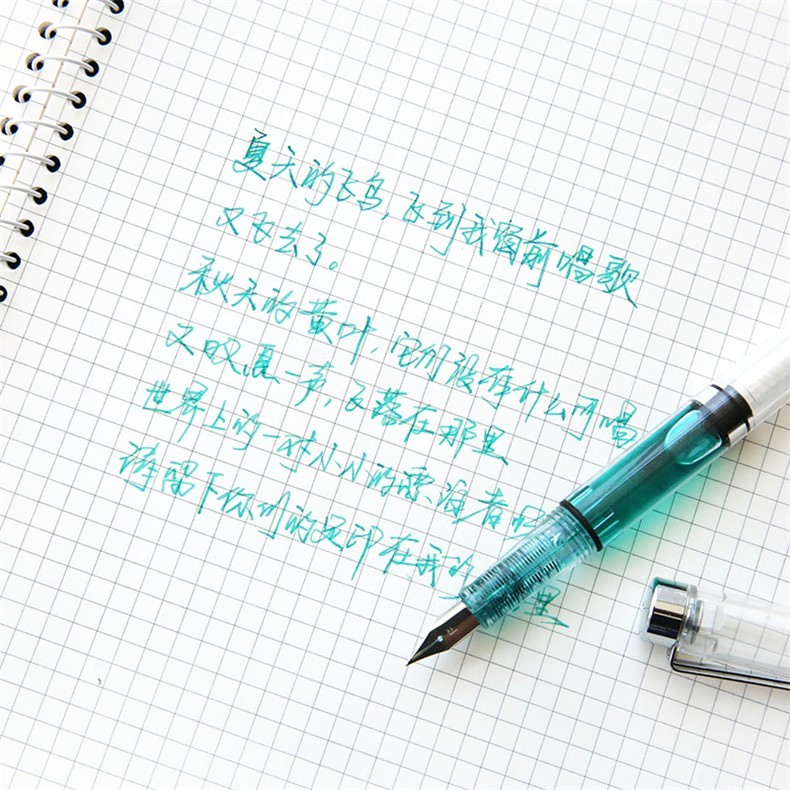 夏天的飞鸟，飞到我窗前唱歌
又飞去了。
秋天的黄叶，它们没有什么可唱
又叹息一声，飞落在那里
世界上的一对小小的漂泊者呀
请留下你们的足印在我的 里